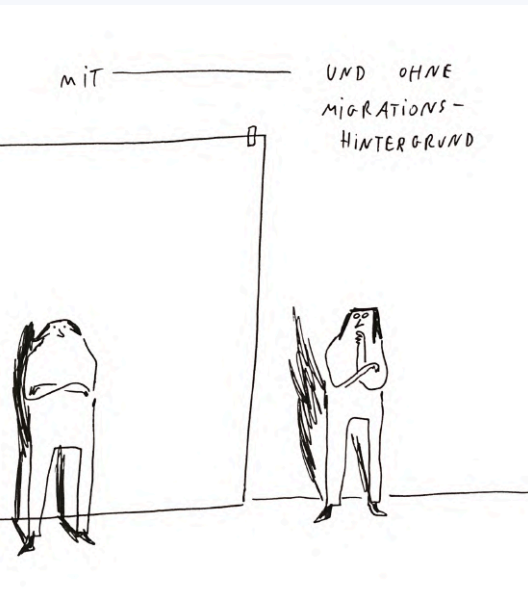 MiT ——— UND OHNE
MiGRATiONS-
HiNTERGRUND